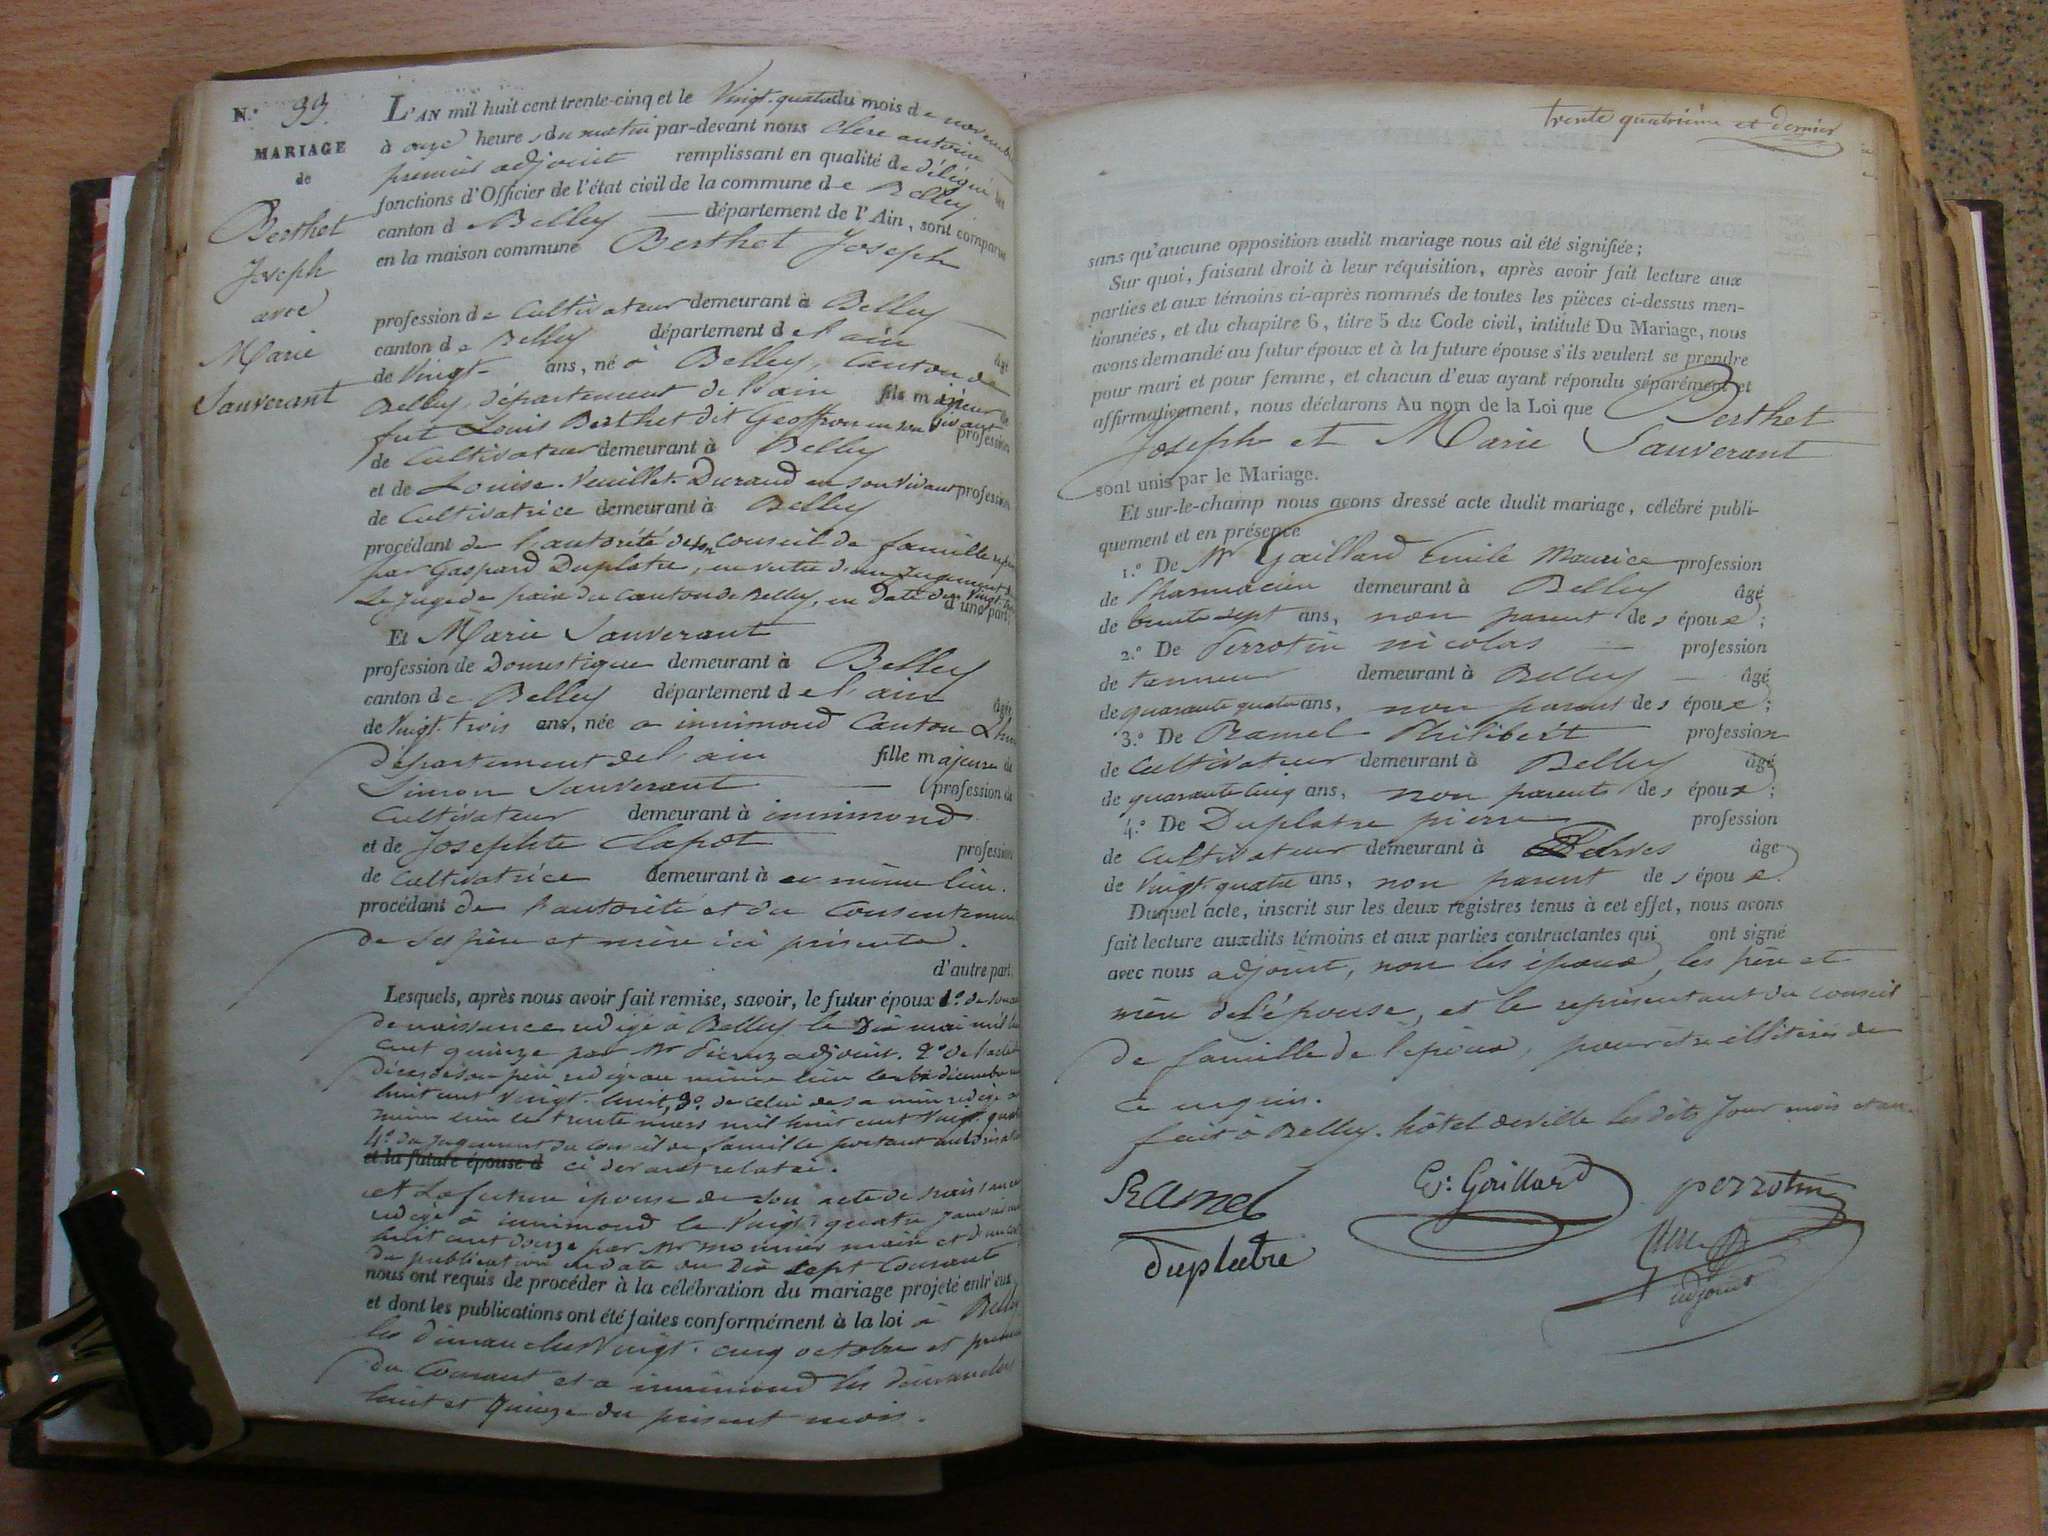 N.° 33.
MARIAGE
de
Berthet
Joseph
avec
Marie
Sauverant
L'AN mil huit cent trente-cinq et le Vingt-quatre du mois de novembre
à onze heures du matin par-devant nous Clerc antoine
premier adjoint remplissant en qualité de délégué les
fonctions d'Officier de l'état civil de la commune de Belley
canton d Belley département de l'Ain, sont comparus
en la maison commune Berthet Joseph
profession de Cultivateur demeurant à Belley
canton de Belley département de l'ain âgé
de Vingt ans, né à Belley, Canton de
Belley, département de l'ain fils majeur de
fut Louis Berthet dit Geoffron en son vivant profession
de Cultivateur demeurant à Belley
et de Louise Veuillet-Durand en son vivant profession
de Cultivatrice demeurant à Belley
procédant de l'autorité de son Conseil de famille
par Gaspard Duplatre, en vertu d'un jugement de
Le Juge de paix du Canton de Belley, en date du Vingt
d'une part;
Et Marie Sauverant
profession de Domestique demeurant à Belley
canton de Belley département de l'ain âgée
de Vingt-trois ans, née a innimond Canton Lhuis
département de l'ain fille majeure de
Simon Sauverant profession de
Cultivateur demeurant à innimond
et de Josephte Clapot profession
de Cultivatrice demeurant à ce même lieu.
procédant de l'autorité et du Consentement
de ses père et mère ici présents.
d'autre part;
Lesquels, après nous avoir fait remise, savoir, le futur époux 1.° de son acte
de naissance rédigé à Belley le Dix mai mil huit
cent quinze par Mr adjoint. 2.° de l'acte de
décès de son père rédigé au même lieu le décembre mil
huit cent Vingt-huit, 3.° de celui de sa mère rédigé au
même lieu le trente mars mil huit cent Vingt quatre
4.° du jugement du conseil de famille portant autorisation
et la future épouse d ci devant relaté.
et La future épouse de son acte de naissance
rédigé à innimond le Vingt-quatre janvier mil
huit cent douze par Mr monnier maire et d'un
de publication en date du Dix sept Courant
nous ont requis de procéder à la célébration du mariage projeté entr'eux
et dont les publications ont été faites conformément à la loi à Belley
les dimanches Vingt-cinq octobre et premier
du Courant et a innimond les dimanches
huit et Quinze du présent mois.
trente quatrième et dernier
sans qu'aucune opposition audit mariage nous ait été signifiée;
Sur quoi, faisant droit à leur réquisition, après avoir fait lecture aux
parties et aux témoins ci-après nommés de toutes les pièces ci-dessus men-
tionnées, et du chapitre 6, titre 5 du Code civil, intitulé Du Mariage, nous
avons demandé au futur époux et à la future épouse s'ils veulent se prendre
pour mari et pour femme, et chacun d'eux ayant répondu séparément et
affirmativement, nous déclarons Au nom de la Loi que Berthet
Joseph et Marie Sauverant
sont unis par le Mariage.
Et sur-le-champ nous avons dressé acte dudit mariage, célébré publi-
quement et en présence
1.° De Mr Gaillard Emile Maurice profession
de Pharmacien demeurant à Belley âgé
de trente sept ans, non parent des époux;
2.° De Perrotin nicolas profession
de tanneur demeurant à Belley âgé
de quarante quatre ans, non parent des époux;
3.° De Ramel Philibert profession
de Cultivateur demeurant à Belley âgé
de quarante cinq ans, non parents des époux;
4.° De Duplatre pierre profession
de Cultivateur demeurant à âgé
de Vingt-quatre ans, non parent des époux.
Duquel acte, inscrit sur les deux registres tenus à cet effet, nous avons
fait lecture auxdits témoins et aux parties contractantes qui ont signé
avec nous adjoint, non les époux, les père et
mère de l'épouse, et le représentant du conseil
de famille de l'époux, pour être illitérés de
ce requis.
fait à Belley, hôtel de ville les dits jour mois et an.
Ramel
E. Gaillard
perrotin
duplatre
Clerc
adjoint